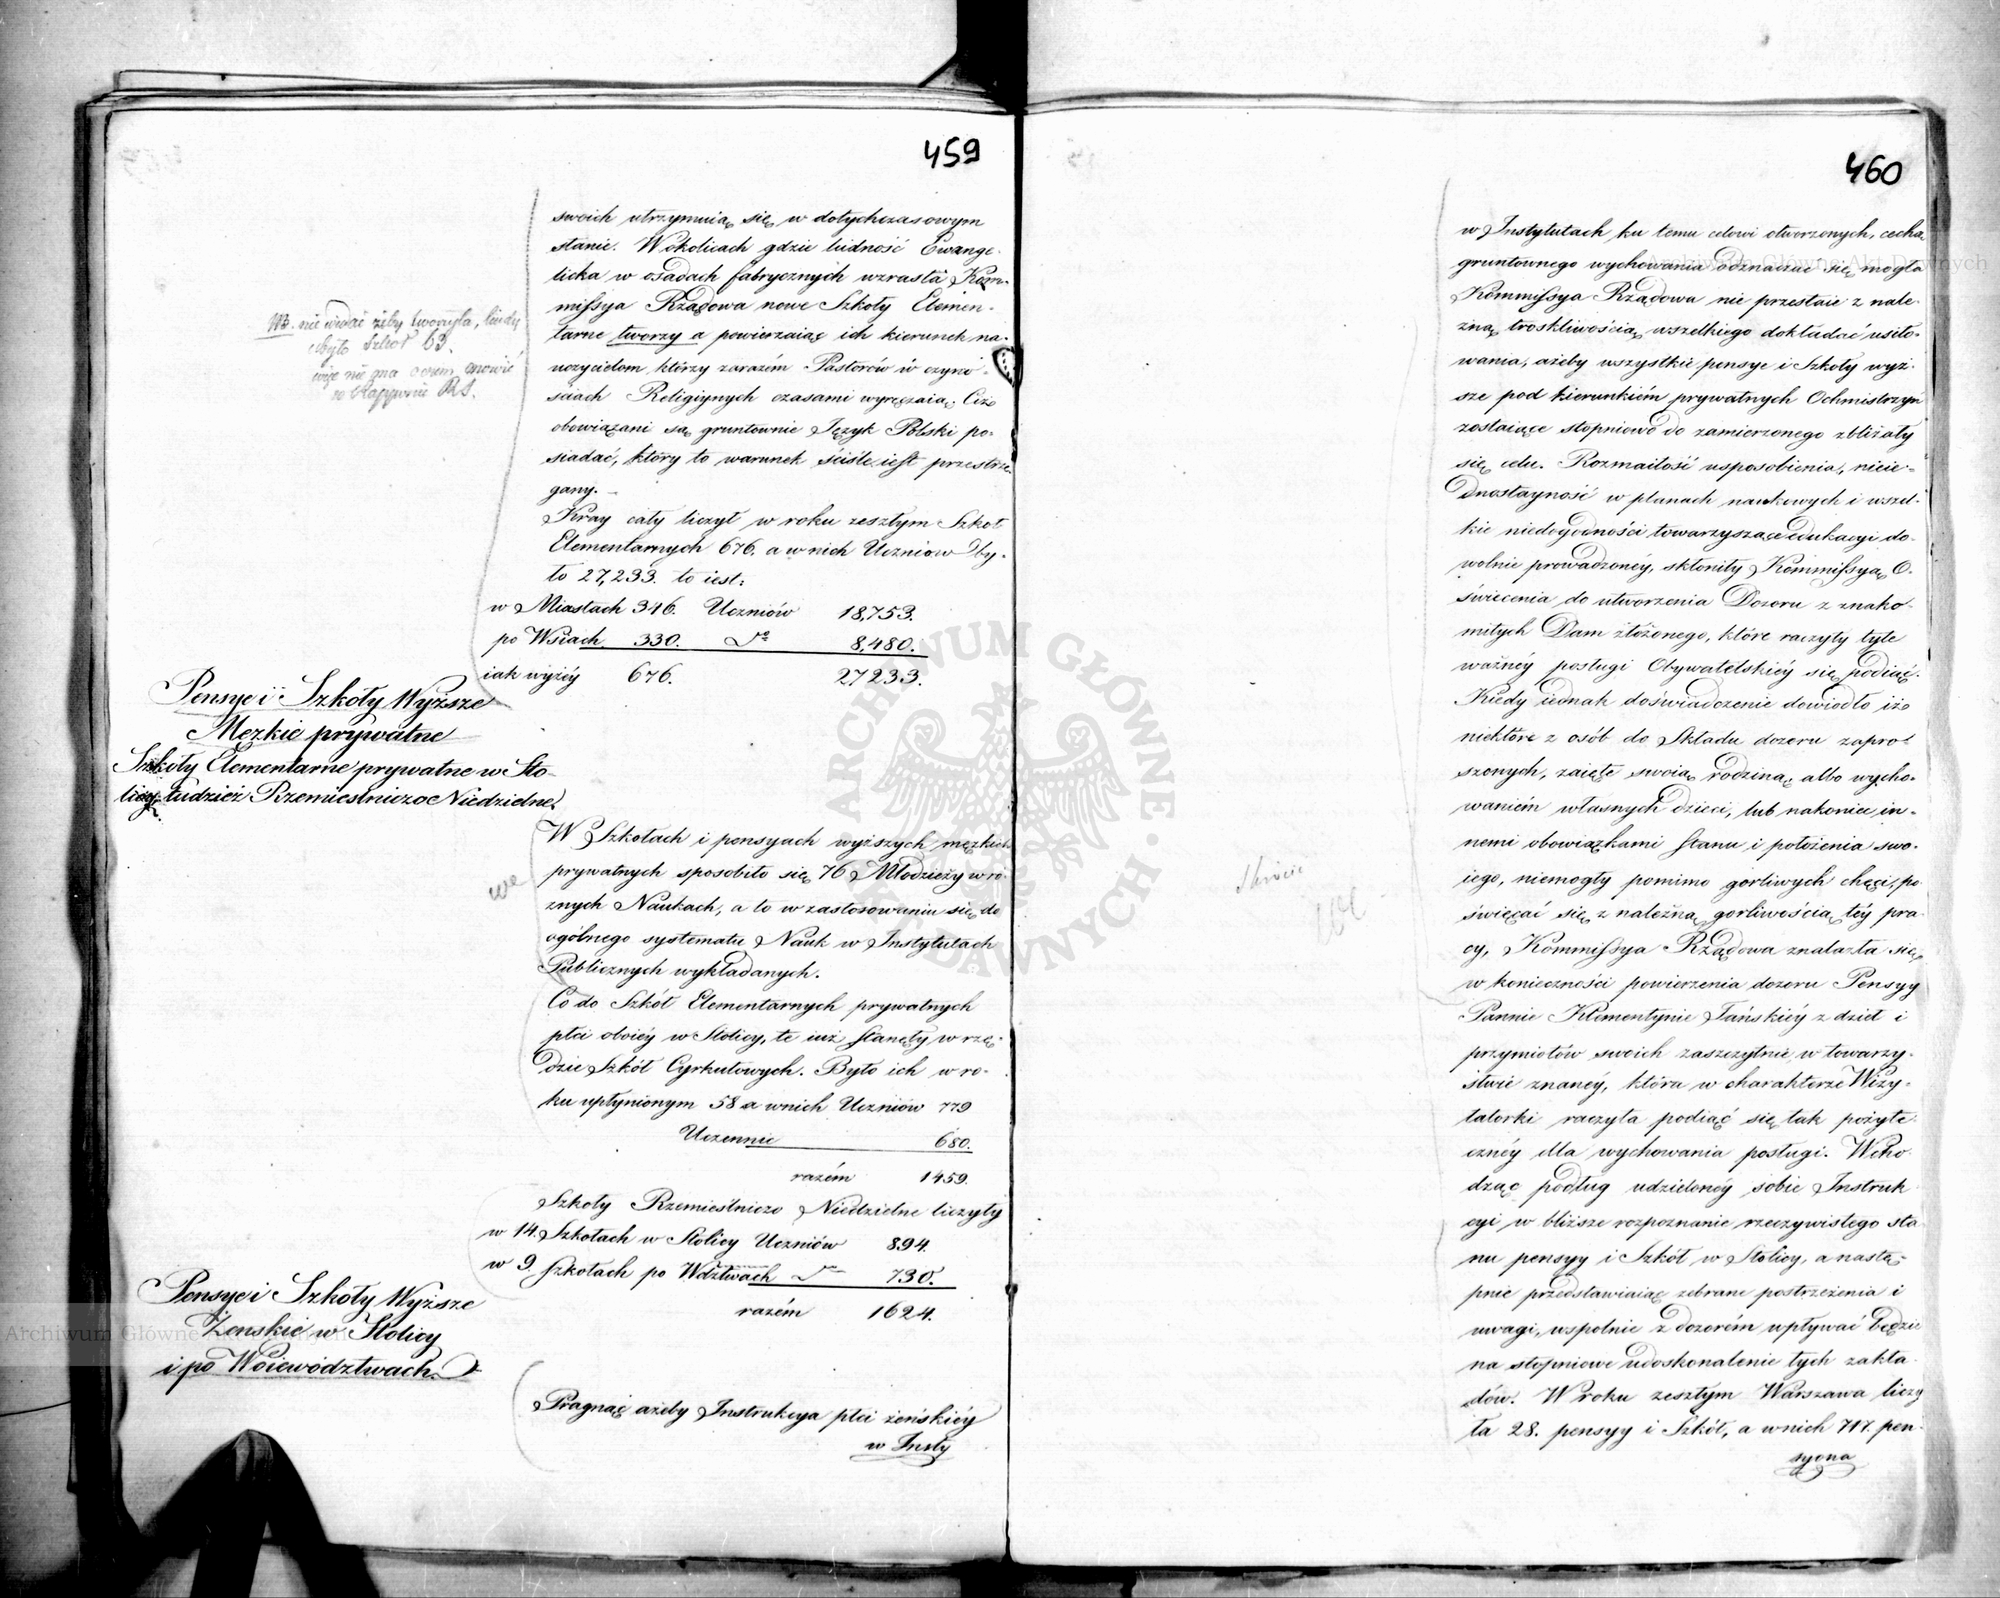 459
swoich utrzymuią się w dotychczasowym
stanie. W okolicach gdzie ludność Ewange-
licka w osadach fabrycznych wzrasta Kom-
missya Rządowa nowe Szkoły Elemen-
tarne tworzy a powierzaiąc ich kierunek na-
uczycielom którzy zarazém Pastorów w czyno-
ściach Religiynych czasami wyręczaią. Ciż
obowiązani są gruntownie Język Polski po-
siadać, który to warunek ściśle iest przestrze-
gany.
NB. nie widać żeby tworzyła,
było Szkół 63.
Kray cały liczył w roku zeszłym Szkoł
Elementarnych 676. a w nich Uczniow by-
ło 27,233. to iest:
w Miastach 346. Uczniów 18,753.
po Wsiach 330. do 8,480.
iak wyżéy 676. 27233.
Pensye i Szkoły Wyższe
Mezkie prywatne
Szkoły Elementarne prywatne w Sto-
licy, tudzież Rzemieslniczo Niedzielne.
W Szkołach i pensyach wyższych męzkich
prywatnych sposobiło się 76 Młodzieży w ró-
znych Naukach, a to w zastosowaniu się do
ogólnego systematu Nauk w Instytutach
Publicznych wykładanych.
Co do Szkół Elementarnych prywatnych
płci oboiéy w Stolicy, te iuż stanęły w rzę-
dzie Szkół Cyrkułowych. Było ich w ro-
ku upłynionym 58 a w nich Uczniów 779
Uczennic 680.
razém 1459.
Szkoły Rzemieslniczo Niedzielne liczyły
w 14. Szkołach w Stolicy Uczniów 894.
w 9. Szkołach po Wdztwach 730.
razém 1624.
Pensye i Szkoły Wyższe
Żenskie w Stolicy
i po Woiewództwach.
Pragnąc ażeby Instrukcya płci żeńskiéy
w Insty
460
w Instytutach ku temu celowi otworzonych, cechą
gruntownego wychowania odznaczać się mogła
Kommissya Rządowa nie przestaie z nale-
zną troskliwością wszelkiego dokładać usiło-
wania, ażeby wszystkie pensye i Szkoły wyż-
sze pod kierunkiém prywatnych Ochmistrzyn
zostaiące stopniowo do zamierzonego zbliżały
się celu. Rozmaitość usposobienia, nieie-
dnostayność w planach naukowych i wszel-
kie niedogodności towarzyszące edukacyi do-
wolnie prowadzonéy, skłoniły Kommissyą O-
świecenia do utworzenia Dozoru z znako-
mitych Dam złożonego, które raczyły tyle
ważnéy posługi Obywatelskiéy się podiąć.
Kiedy iednak doświadczenie dowiodło iż
niektóre z osób do Składu dozoru zapro-
szonych, zaięte swoią rodziną, albo wycho-
waniém własnych dzieci, lub nakoniec in-
nemi obowiązkami stanu i położenia swo-
iego, niemogły pomimo gorliwych chęci, po-
święcać się z należną gorliwością téy pra-
cy, Kommissya Rządowa znalazła się
w konieczności powierzenia dozoru Pensyy
Pannie Klementynie Tańskiéy z dzieł i
przymiotów swoich zaszczytnie w towarzy-
stwie znanéy, która w charakterze Wizy-
tatorki raczyła podiąć się tak pożyte-
cznéy dla wychowania posługi. Wcho-
dząc podług udzielonéy sobie Instruk-
cyi w bliższe rozpoznanie rzeczywistego sta-
nu pensyy i Szkół w Stolicy, a nastę-
pnie przedstawiaiąc zebrane postrzeżenia i
uwagi, wspólnie z dozorém wpływać będzie
na stopniowe udoskonalenie tych zakła-
dów. W roku zeszłym Warszawa liczy-
ła 28. pensyy i Szkół, a w nich 717. pen-
syona
ARCHIWUM GŁÓWNE AKT DAWNYCH
Archiwum Główne Akt Dawnych
Archiwum Główne